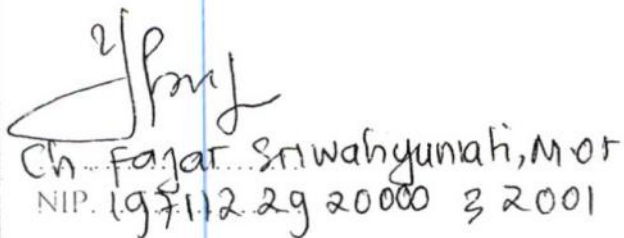 Ch. Fajar Sriwahyuniati, M.Or
NIP. 19711229 20000 3 2001